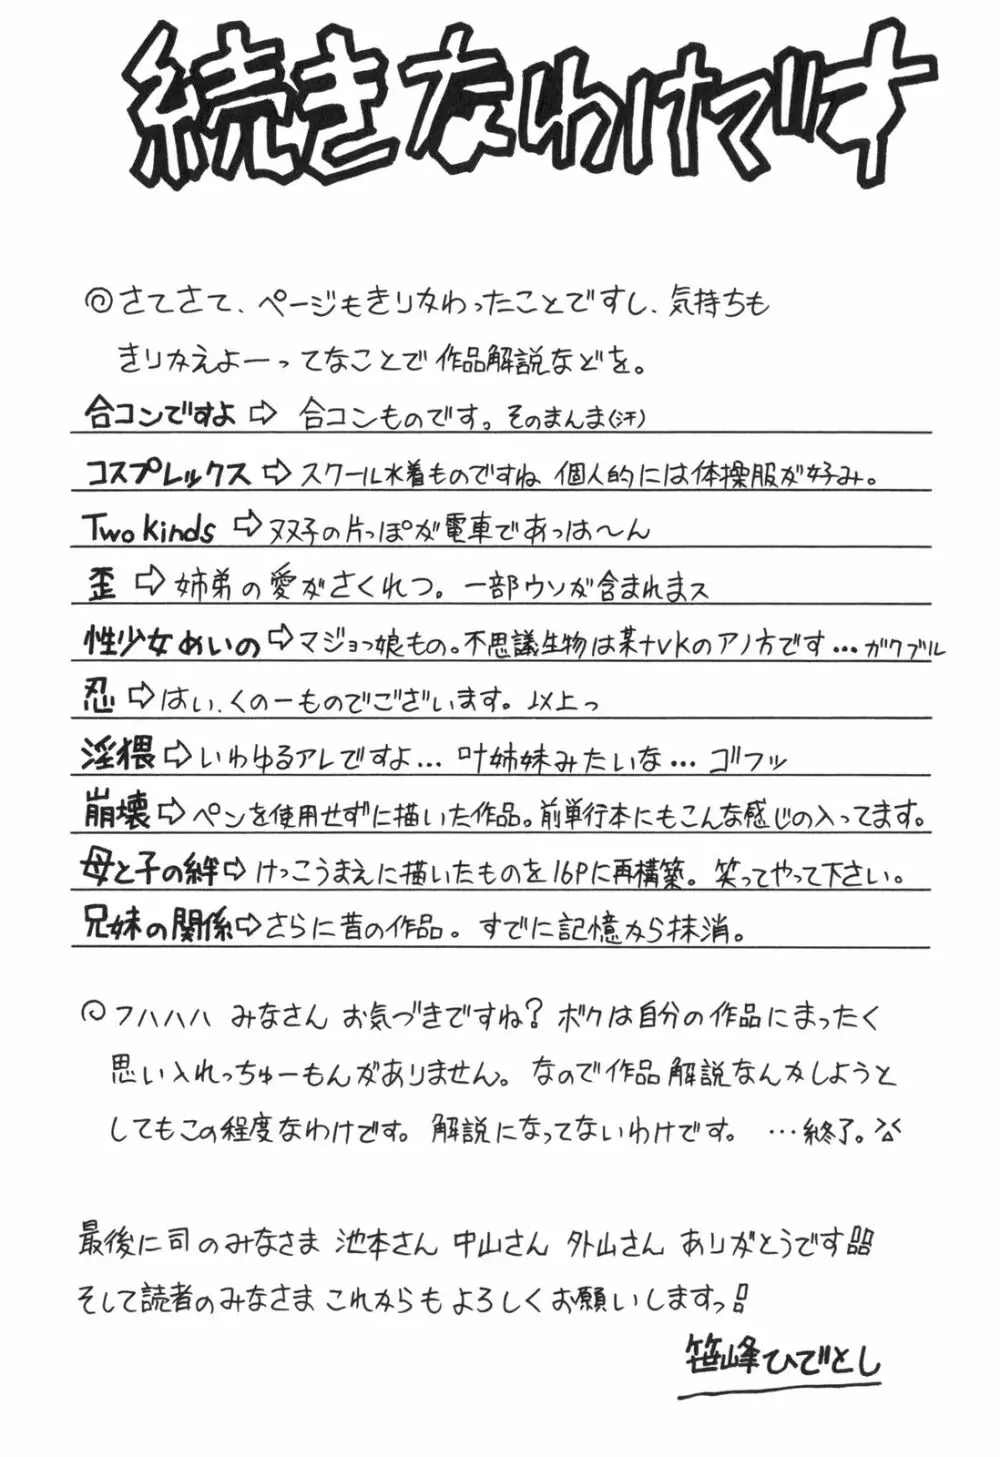 続きなわけです
さてさて、ページもきりかわったことですし、気持ちも
きりかえよーってなことで作品解説などを。
合コンですよ⇨合コンものです。そのまんま(汗)
コスプレックス⇨スクール水着ものですね 個人的には体操服が好み。
Two Kinds⇨双子の片っぽが電車であっは〜ん
歪⇨姉弟の愛がさくれつ。一部ウソが含まれまス
性少女めいの⇨マジョっ娘もの。不思議生物は某ナVKのアノ方です…ガクブル
忍⇨はい、くの一ものでございます。以上っ
淫猥⇨いわゆるアレですよ… 叶姉妹みたいな… ゴフッ
崩壊⇨ペンを使用せずに描いた作品。前単行本にもこんな感じの入ってます。
母と子の絆⇨けっこうまえに描いたものを16Pに再構築。笑ってやって下さい。
兄妹の関係⇨さらに昔の作品。すでに記憶から抹消。
フハハハ みなさん お気づきですね? ボクは自分の作品にまったく
思い入れっちゅーもんがありません。なので作品解説なんかしようと
してもこの程度なわけです。解説になってないわけです。…終了。
最後に司のみなさま 池本さん 中山さん 外山さん ありがとうです!!
そして読者のみなさま これからもよろしくお願いしますっ!
笹峰ひでとし